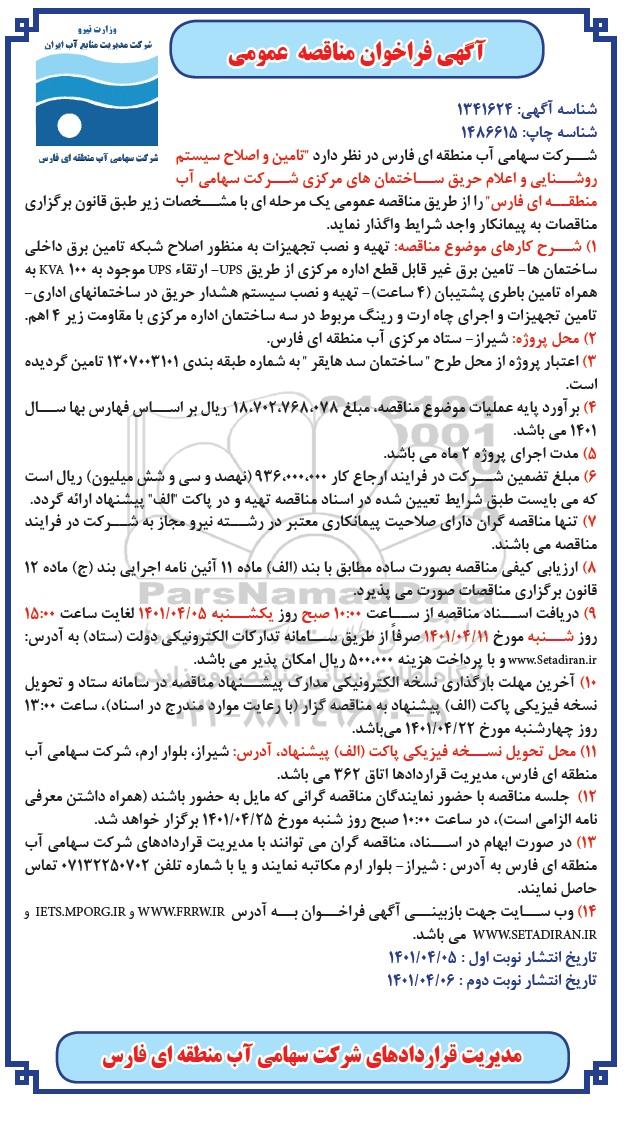 وزارت نیرو
شرکت مدیریت منابع آب ایران
آگهی فراخوان مناقصه عمومی
شرکت سهامی آب منطقه ای فارس
شناسه آگهی: ۱۳۴۱۶۲۴
شناسه چاپ: ۱۴۸۶۶۱۵
شرکت سهامی آب منطقه ای فارس در نظر دارد "تامین و اصلاح سیستم
روشنایی و اعلام حریق ساختمان های مرکزی شرکت سهامی آب
منطقه ای فارس" را از طریق مناقصه عمومی یک مرحله ای با مشخصات زیر طبق قانون برگزاری
مناقصات به پیمانکار واجد شرایط واگذار نماید.
۱) شرح کارهای موضوع مناقصه: تهیه و نصب تجهیزات به منظور اصلاح شبکه تامین برق داخلی
ساختمان ها- تامین برق غیر قابل قطع اداره مرکزی از طریق UPS- ارتقاء UPS موجود به ۱۰۰ KVA به
همراه تامین باطری پشتیبان (۴ ساعت)- تهیه و نصب سیستم هشدار حریق در ساختمانهای اداری-
تامین تجهیزات و اجرای چاه ارت و رینگ مربوط در سه ساختمان اداره مرکزی با مقاومت زیر ۴ اهم.
۲) محل پروژه: شیراز- ستاد مرکزی آب منطقه ای فارس.
۳) اعتبار پروژه از محل طرح "ساختمان سد هایقر" به شماره طبقه بندی ۱۳۰۷۰۰۳۱۰۱ تامین گردیده
است.
۴) برآورد پایه عملیات موضوع مناقصه، مبلغ ۱۸،۷۰۲،۷۶۸،۰۷۸ ریال بر اساس فهارس بها سال
۱۴۰۱ می باشد.
۵) مدت اجرای پروژه ۲ ماه می باشد.
۶) مبلغ تضمین شرکت در فرایند ارجاع کار ۹۳۶،۰۰۰،۰۰۰ (نهصد و سی و شش میلیون) ریال است
که می بایست طبق شرایط تعیین شده در اسناد مناقصه تهیه و در پاکت "الف" پیشنهاد ارائه گردد.
۷) تنها مناقصه گران دارای صلاحیت پیمانکاری معتبر در رشته نیرو مجاز به شرکت در فرایند
مناقصه می باشند.
۸) ارزیابی کیفی مناقصه بصورت ساده مطابق با بند (الف) ماده ۱۱ آئین نامه اجرایی بند (ج) ماده ۱۲
قانون برگزاری مناقصات صورت می پذیرد.
۹) دریافت اسناد مناقصه از ساعت ۱۰:۰۰ صبح روز یکشنبه ۱۴۰۱/۰۴/۰۵ لغایت ساعت ۱۵:۰۰
روز شنبه مورخ ۱۴۰۱/۰۴/۱۱ صرفاً از طریق سامانه تدارکات الکترونیکی دولت (ستاد) به آدرس:
www.Setadiran.ir و با پرداخت هزینه ۵۰۰،۰۰۰ ریال امکان پذیر می باشد.
۱۰) آخرین مهلت بارگذاری نسخه الکترونیکی مدارک پیشنهاد مناقصه در سامانه ستاد و تحویل
نسخه فیزیکی پاکت (الف) پیشنهاد به مناقصه گزار (با رعایت موارد مندرج در اسناد)، ساعت ۱۳:۰۰
روز چهارشنبه مورخ ۱۴۰۱/۰۴/۲۲ می‌باشد.
۱۱) محل تحویل نسخه فیزیکی پاکت (الف) پیشنهاد، آدرس: شیراز، بلوار ارم، شرکت سهامی آب
منطقه ای فارس، مدیریت قراردادها اتاق ۳۶۲ می باشد.
۱۲) جلسه مناقصه با حضور نمایندگان مناقصه گرانی که مایل به حضور باشند (همراه داشتن معرفی
نامه الزامی است)، در ساعت ۱۰:۰۰ صبح روز شنبه مورخ ۱۴۰۱/۰۴/۲۵ برگزار خواهد شد.
۱۳) در صورت ابهام در اسناد، مناقصه گران می توانند با مدیریت قراردادهای شرکت سهامی آب
منطقه ای فارس به آدرس : شیراز- بلوار ارم مکاتبه نمایند و یا با شماره تلفن ۰۷۱۳۲۲۵۰۷۰۲ تماس
حاصل نمایند.
۱۴) وب سایت جهت بازبینی آگهی فراخوان به آدرس WWW.FRRW.IR و IETS.MPORG.IR و
WWW.SETADIRAN.IR می باشد.
تاریخ انتشار نوبت اول : ۱۴۰۱/۰۴/۰۵
تاریخ انتشار نوبت دوم : ۱۴۰۱/۰۴/۰۶
مدیریت قراردادهای شرکت سهامی آب منطقه ای فارس
ParsNamadData